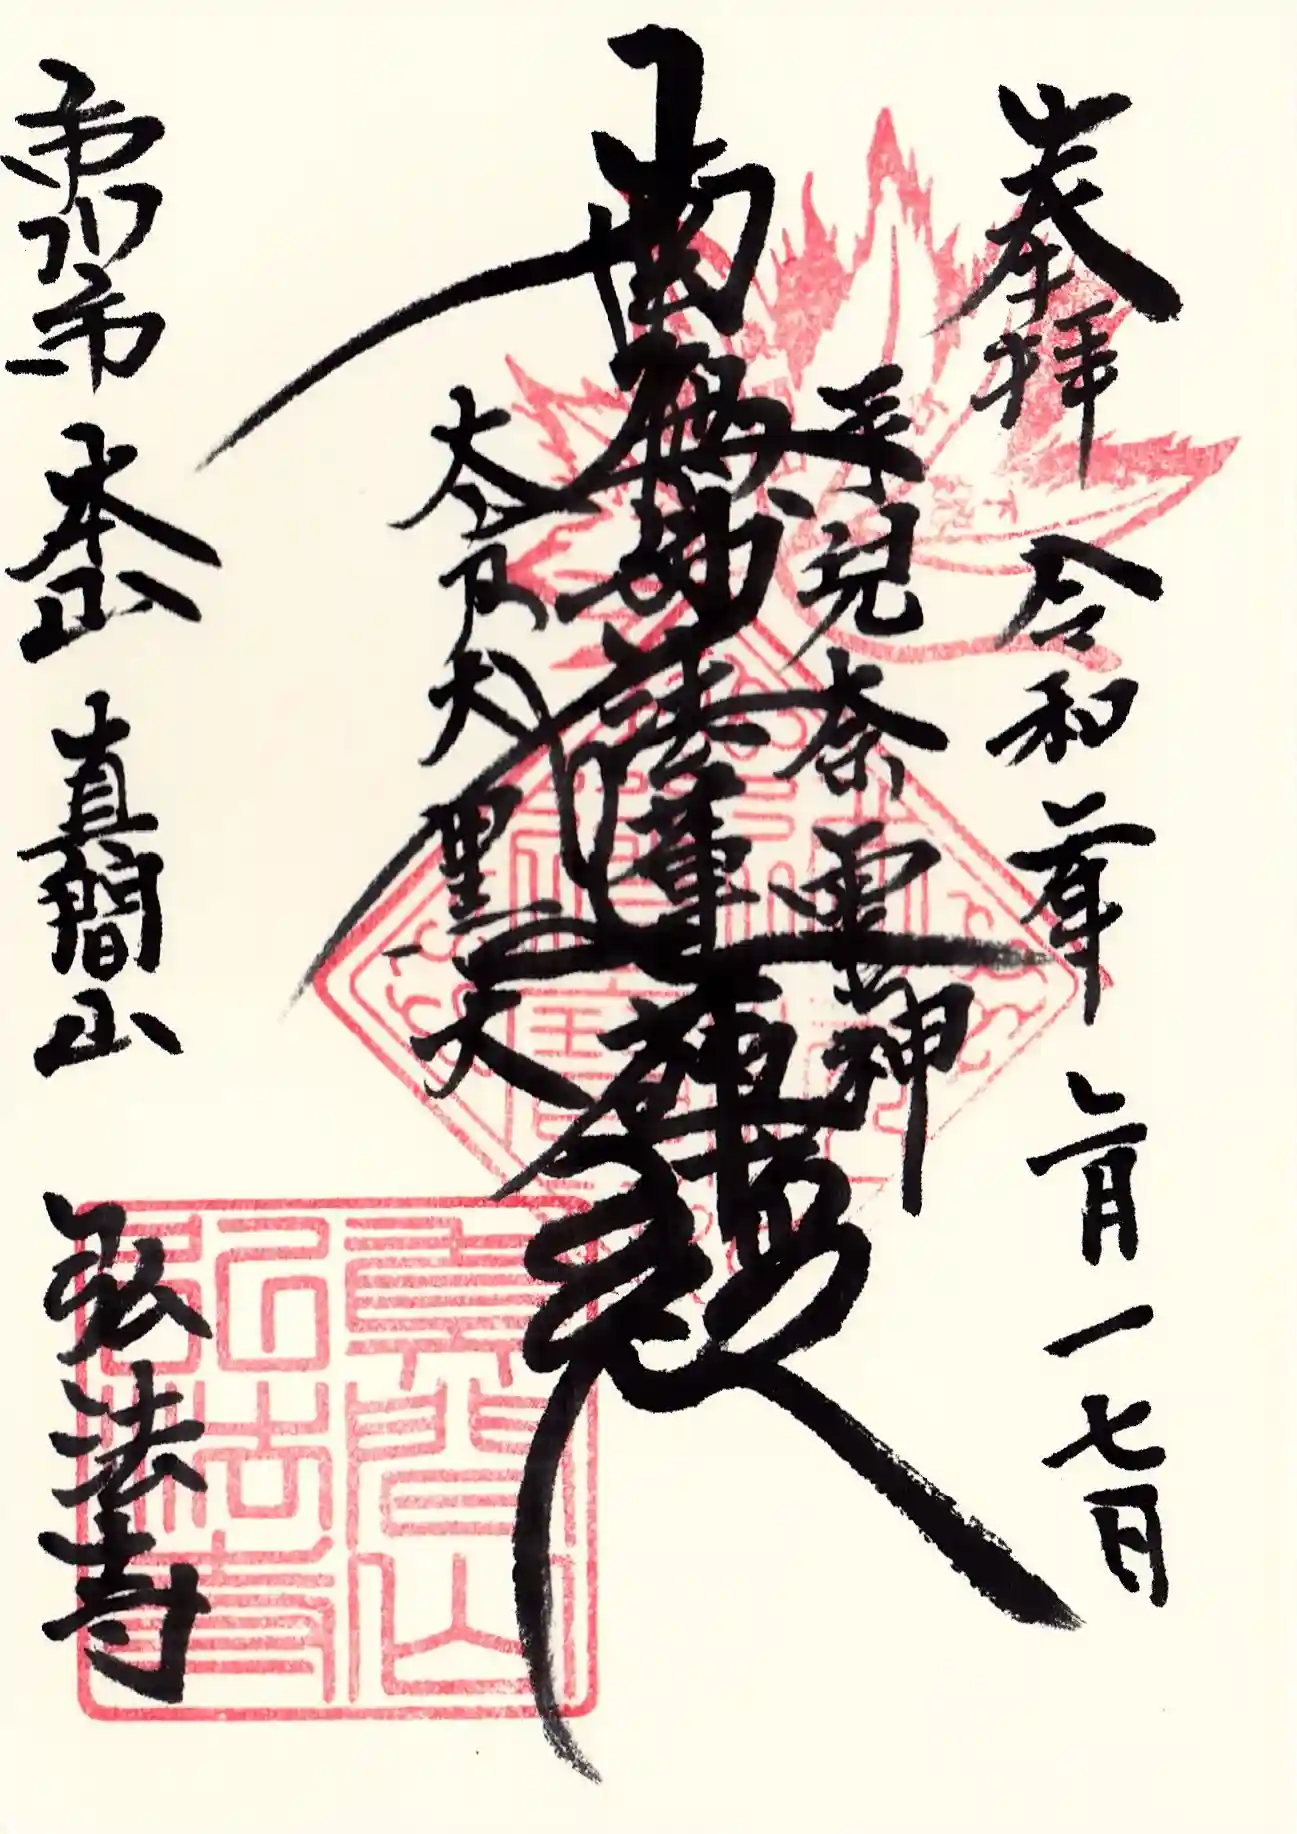 奉拝 令和 年 月一七日
手児奈霊神
南無妙法蓮華経
太刀大黒尊天
市川市 本山 真間山 弘法寺
真間山
弘法寺